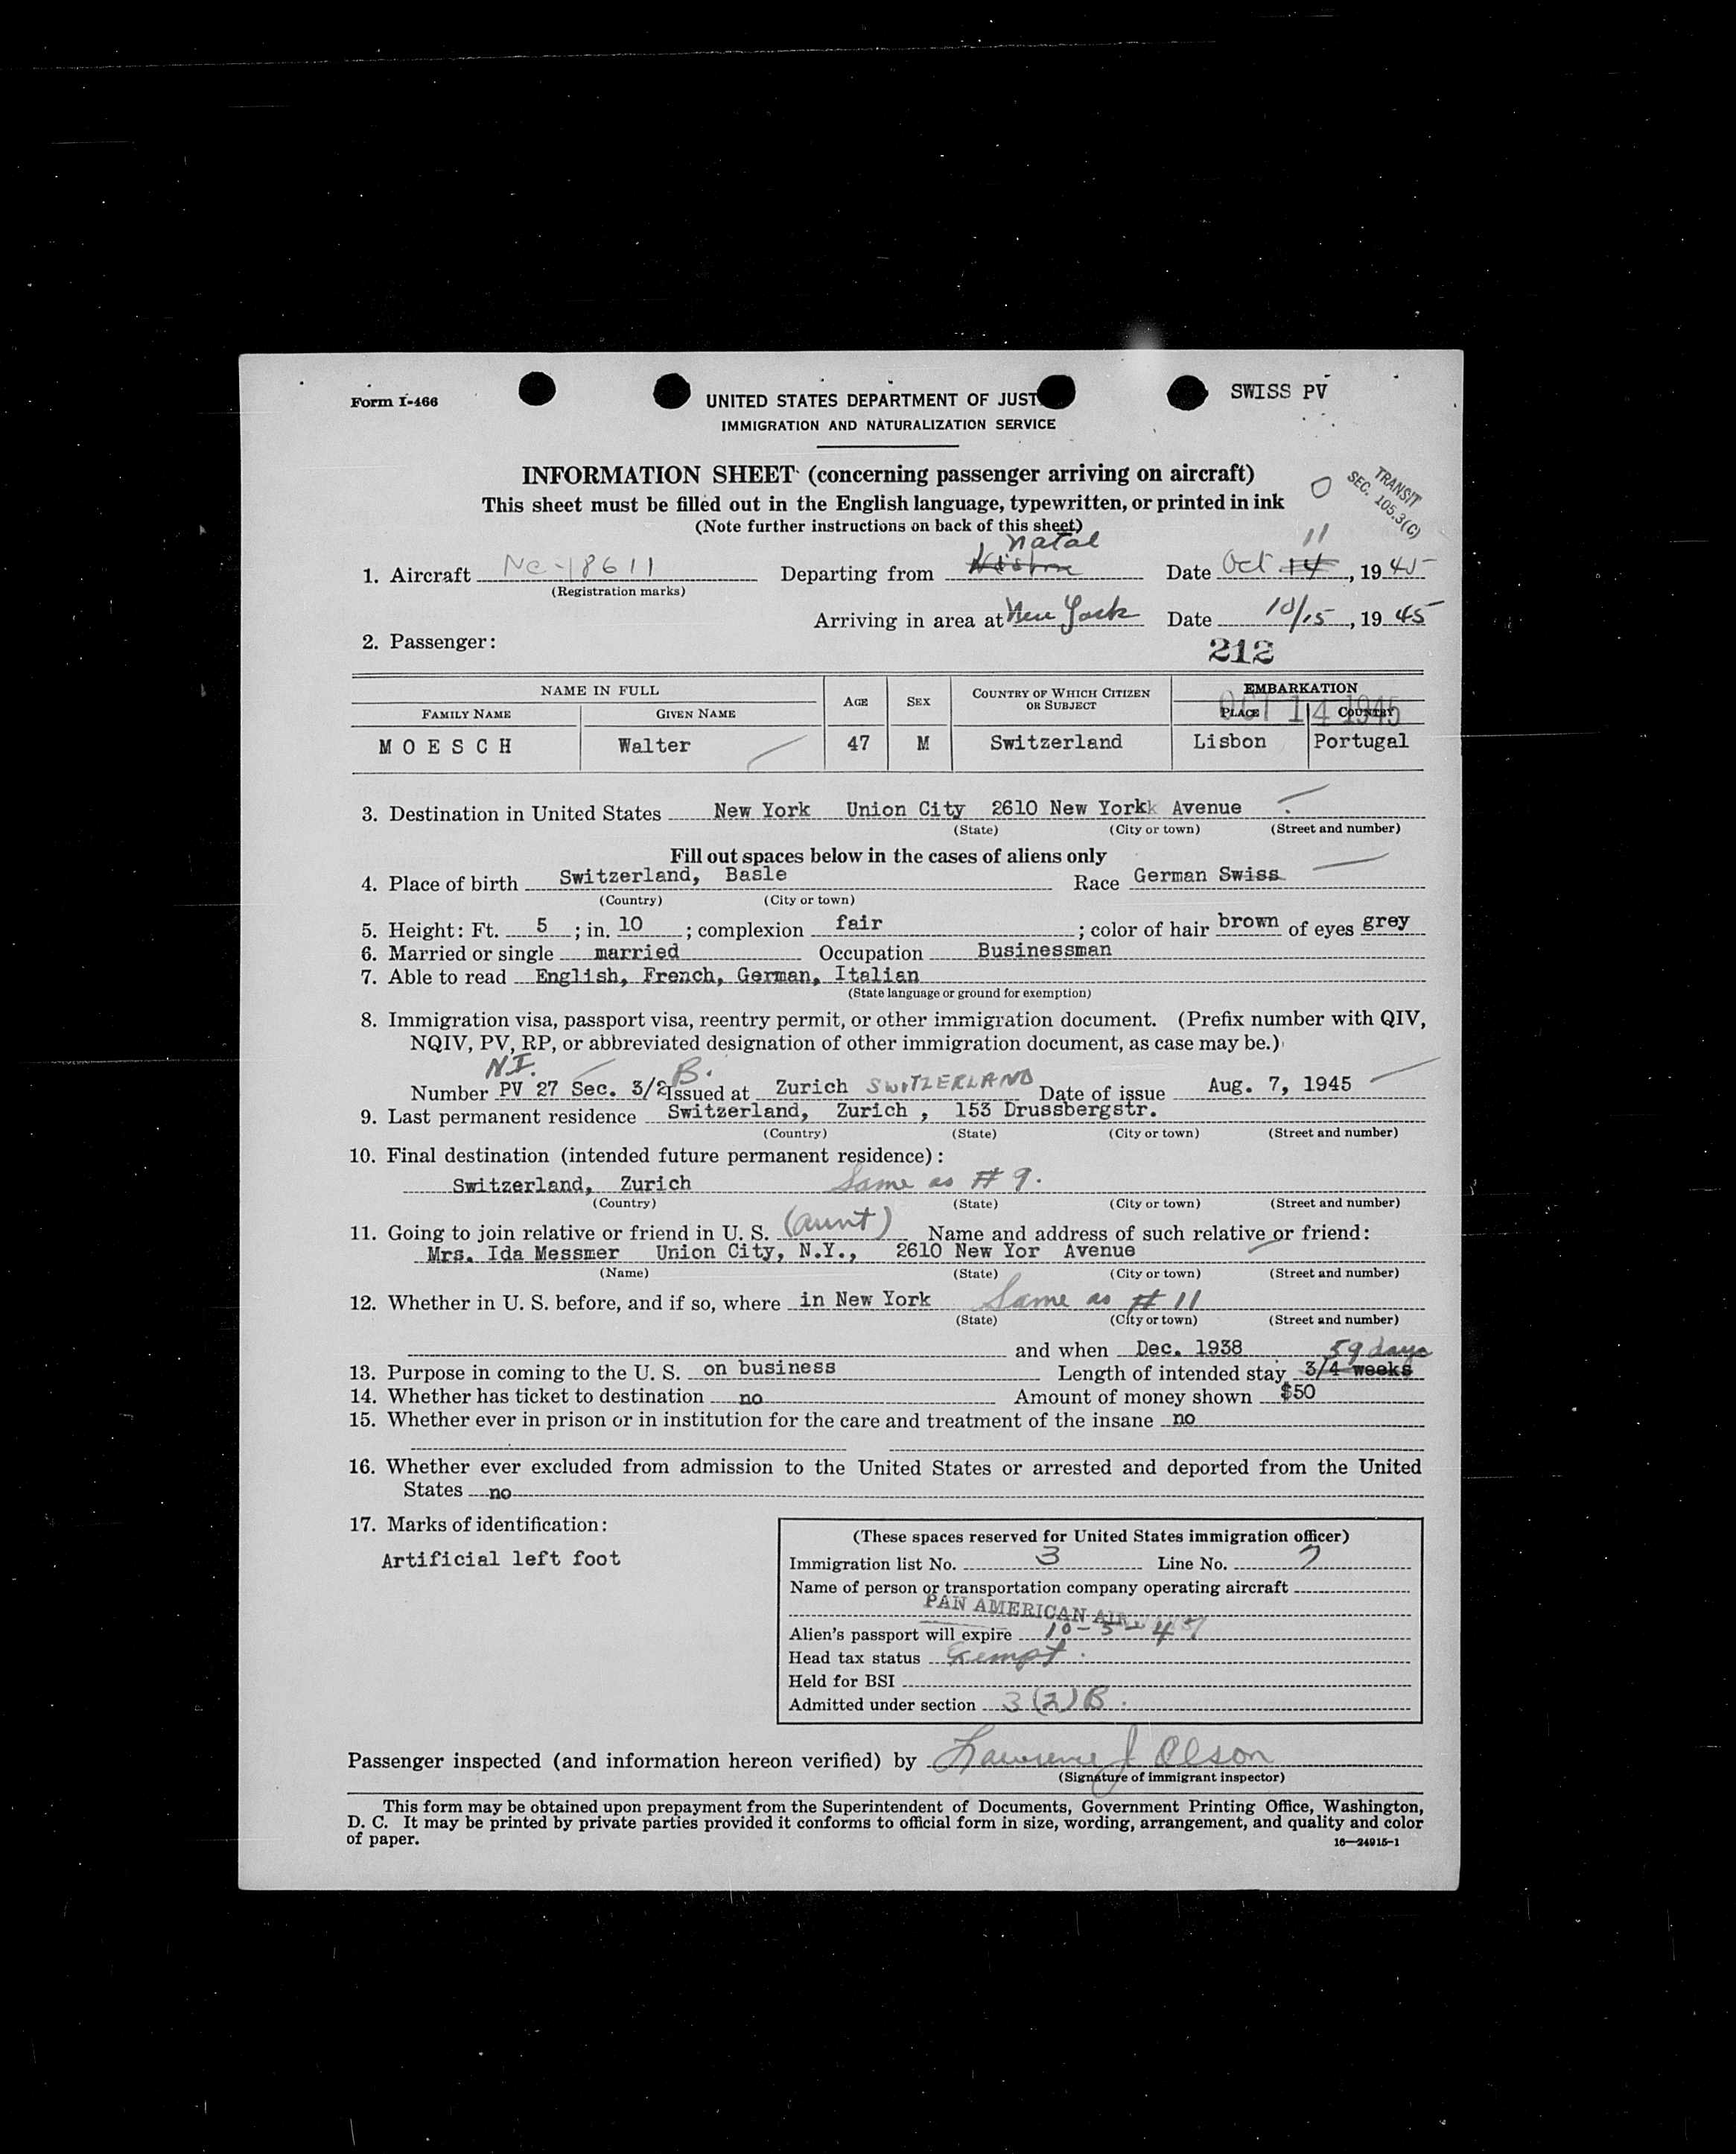 Form I-466
UNITED STATES DEPARTMENT OF JUST
SWISS PV
IMMIGRATION AND NATURALIZATION SERVICE
INFORMATION SHEET (concerning passenger arriving on aircraft)
TRANSIT
SEC. 105.3(C)
This sheet must be filled out in the English language, typewritten, or printed in ink
(Note further instructions on back of this sheet)
natal 11
1. Aircraft NC-18611 Departing from Lisbon Date Oct 14, 1945
(Registration marks)
Arriving in area at New York Date 10/15, 1945
2. Passenger:
212
NAME IN FULL AGE SEX COUNTRY OF WHICH CITIZEN OR SUBJECT EMBARKATION
FAMILY NAME GIVEN NAME PLACE COUNTRY
OCT 14 1945
MOESCH Walter 47 M Switzerland Lisbon Portugal
3. Destination in United States New York Union City 2610 New Yorkk Avenue
(State) (City or town) (Street and number)
Fill out spaces below in the cases of aliens only
4. Place of birth Switzerland, Basle Race German Swiss
(Country) (City or town)
5. Height: Ft. 5; in. 10; complexion fair; color of hair brown of eyes grey
6. Married or single married Occupation Businessman
7. Able to read English, French, German, Italian
(State language or ground for exemption)
8. Immigration visa, passport visa, reentry permit, or other immigration document. (Prefix number with QIV,
NQIV, PV, RP, or abbreviated designation of other immigration document, as case may be.)
N.I. B.
Number PV 27 Sec. 3/2 Issued at Zurich SWITZERLAND Date of issue Aug. 7, 1945
9. Last permanent residence Switzerland, Zurich, 153 Drussbergstr.
(Country) (State) (City or town) (Street and number)
10. Final destination (intended future permanent residence):
Switzerland, Zurich Same as #9.
(Country) (State) (City or town) (Street and number)
11. Going to join relative or friend in U. S. (aunt) Name and address of such relative or friend:
Mrs. Ida Messmer Union City, N.Y., 2610 New Yor Avenue
(Name) (State) (City or town) (Street and number)
12. Whether in U. S. before, and if so, where in New York Same as #11
(State) (City or town) (Street and number)
and when Dec. 1938 59 days
13. Purpose in coming to the U. S. on business Length of intended stay 3/4 weeks
14. Whether has ticket to destination no Amount of money shown $50
15. Whether ever in prison or in institution for the care and treatment of the insane no
16. Whether ever excluded from admission to the United States or arrested and deported from the United
States no
17. Marks of identification:
Artificial left foot
(These spaces reserved for United States immigration officer)
Immigration list No. 3 Line No. 7
Name of person or transportation company operating aircraft
PAN AMERICAN AIRWAYS
Alien's passport will expire 10-5-47
Head tax status Exempt.
Held for BSI
Admitted under section 3(2)B.
Passenger inspected (and information hereon verified) by Lawrence J Olson
(Signature of immigrant inspector)
This form may be obtained upon prepayment from the Superintendent of Documents, Government Printing Office, Washington,
D. C. It may be printed by private parties provided it conforms to official form in size, wording, arrangement, and quality and color
of paper.
16—24915-1